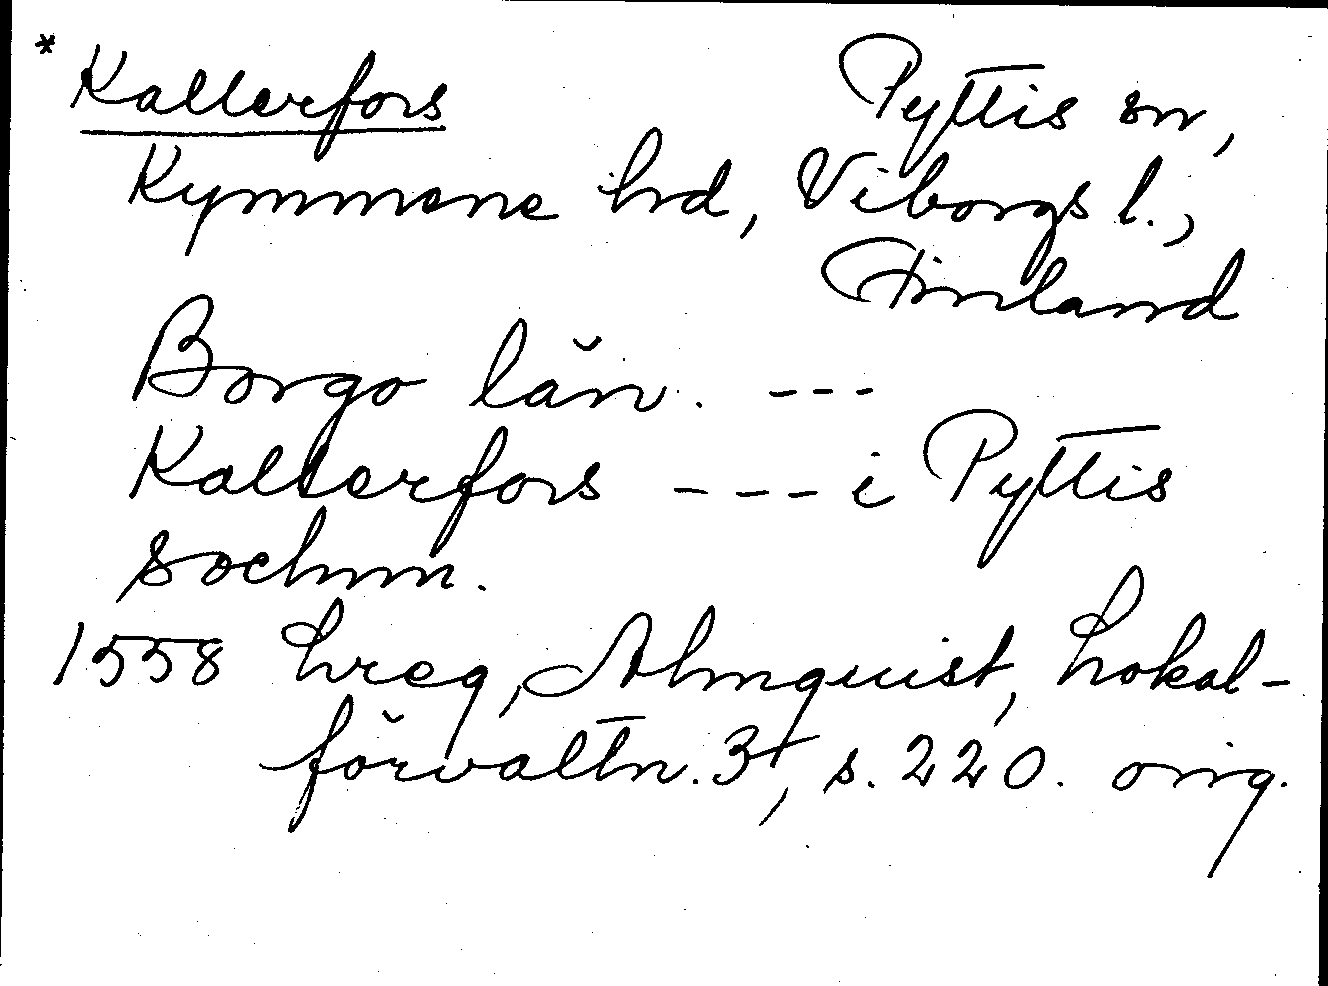 * Kallerfors Pyttis sn,
Kymmene hd, Viborgs l.,
Finland
Borgo län. ---
Kallerfors --- i Pyttis
sochnn.
1558 hreg, Almquist, Lokal-
förvaltn. 3, s. 220. orig.